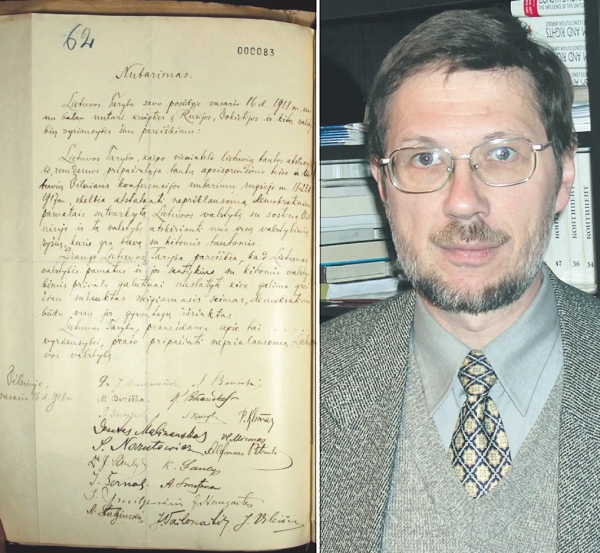 62
000083
Nutarimas.
Lietuvos Taryba savo posėdyje vasario 16 d. 1918 m. vienu
balsu nutarė kreiptis į Rusijos, Vokietijos ir kitų valsty-
bių vyriausybes šiuo pareiškimu:
Lietuvos Taryba, kaipo vienintelė lietuvių tautos atstovy-
bė, remdamos pripažintąja tautų apsisprendimo teise ir lie-
tuvių Vilniaus konferencijos nutarimu rugsėjo m. 18-23 d.
1917 m., skelbia atstatanti nepriklausomą demokratiniais
pamatais sutvarkytą Lietuvos valstybę su sostine Vil-
niuje ir tą valstybę atskirianti nuo visų valstybinių
ryšių, kurie yra buvę su kitomis tautomis.
Drauge Lietuvos Taryba pareiškia, kad Lietuvos
valstybės pamatus ir jos santykius su kitomis valsty-
bėmis privalo galutinai nustatyti kiek galima grei-
čiau sušauktas steigiamasis seimas, demokratiniu
būdu visų jos gyventojų išrinktas.
Lietuvos Taryba, pranešdama apie tai . . . . .
vyriausybei, prašo pripažinti nepriklausomą Lietu-
vos valstybę.
Vilniuje,
vasario 16 d. 1918 m.
M. Biržiška
S. Banaitis
P. Klimas
Donatas Malinauskas
Vl. Mironas
S. Narutowicz
Alfonsas Petrulis
K. Šaulys
J. Šernas
A. Smetona
J. Vailokaitis
J. Vileišis
AND RIGHTS
КОНТИНЕНТ
КОНТИНЕНТ
47
36
34